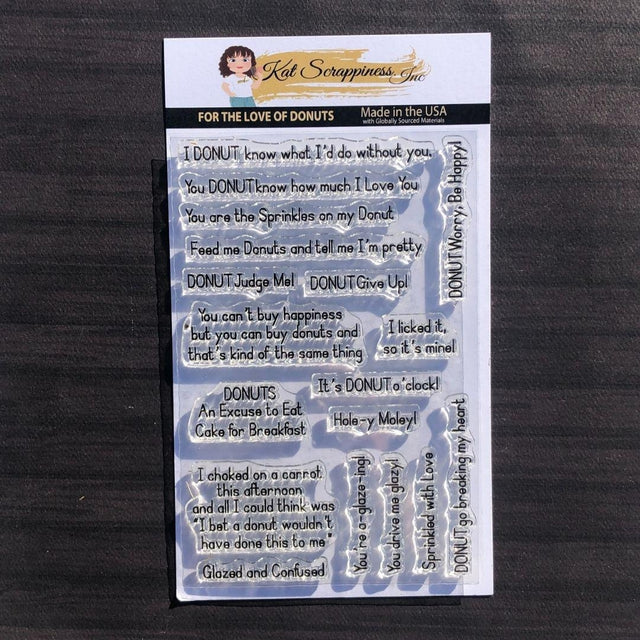 Kat Scrappiness, Inc
FOR THE LOVE OF DONUTS
Made in the USA
with Globally Sourced Materials
I DONUT know what I'd do without you.
You DONUT know how much I Love You
You are the Sprinkles on my Donut
Feed me Donuts and tell me I'm pretty
DONUT Judge Me!
DONUT Give Up!
DONUT Worry, Be Happy!
You can't buy happiness
but you can buy donuts and
that's kind of the same thing
I licked it,
so it's mine!
It's DONUT o'clock!
DONUTS
An Excuse to Eat
Cake for Breakfast
Hole-y Moley!
I choked on a carrot
this afternoon
and all I could think was
"I bet a donut wouldn't
have done this to me"
Glazed and Confused
You're a-glaze-ing!
You drive me glazy!
Sprinkled with Love
DONUT go breaking my heart